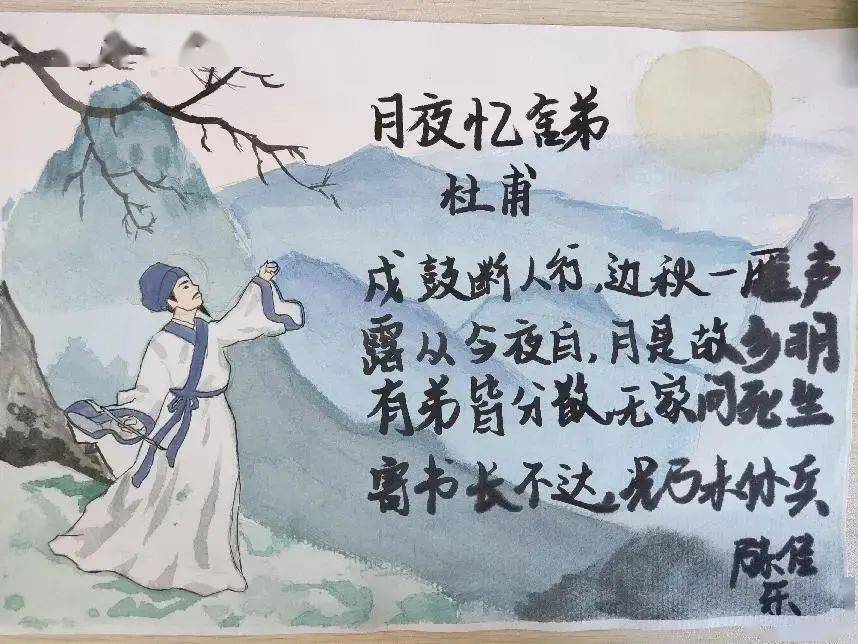 月夜忆舍弟
杜甫
戍鼓断人行,边秋一雁声
露从今夜白,月是故乡明
有弟皆分散,无家问死生
寄书长不达,况乃未休兵